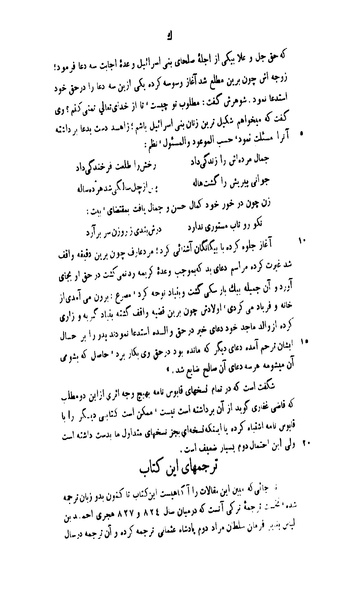 که حق جل و علا بیکی از اجلهٔ صلحای بنی اسرائیل وعدهٔ اجابت سه دعا فرمود؛
زوجه اش چون برین مطلع شد آغاز وسوسه کرده یکی ازین سه دعا را درحق خود
استدعا نمود. شوهرش گفت: مطلوب تو چیست؟ تا از خدای تعالی تمنی کنم؟ وی
گفت که میخواهم شکیل ترین زنان بنی اسرائیل باشم؛ زاهد دست بدعا برداشته
۵ آنرا مسئلت نمود، حسب الموعود والمسئول، نظم:
جمال مرده اش را زندگی داد رخش را طلعت فرخندگی داد
جوانی پیریش را گشت هاله
زن چون در خور خود کمال حسن و جمال یافت بمقتضای، بیت:
نکو رو تاب مستوری ندارد درش بندی ز روزن سر برآرد
۱۰ آغاز جلوه کرده با بیگانگان آشنائی کرد؛ مرد عارف چون برین دقیقه واقف
شد غیرت کرده مراسم دعای بد که بموجب وعدهٔ کریمه رد نمی گشت در حق او بجای
آورد و آن جمیله بیک بار سگی گشت و بنیاد نوحه کرد، مصرع: برون می آمد از
خانه و فریاد می کردی؛ اولادش چون برین قضیه واقف گشته بنیاد گریه و زاری
کرده از والد ماجد خود دعای خیر در حق والده استدعا نمودند پدر را بر حال
۱۵ ایشان ترحم آمده دعای دیگر که مانده بود درحق وی بکار برد، حاصل که بشومی
آن میشومه هر سه دعای آن صالح ضایع شد.»
شگفت است که در تمام نسخهای قابوس نامه بهیچ وجه اثری ازین دو مطلب
که قاضی غفاری گوید از آن برداشته است نیست، ممکن است کتابی دیگر را با
قابوس نامه اشتباه کرده یا اینکه نسخه ای بجز نسخهای متداول ما بدست داشته است
۲۰ ولی این احتمال دوم بسیار ضعیف است.
ترجمهای این کتاب
جائی که مبین این مقالات را آگاهیست این کتاب تا کنون بدو زبان ترجمه
شده، نخست ترجمهٔ ترکی آنست که درمیان سال ۸۲۴ و ۸۲۷ هجری احمد بن
الیاس بفرمان سلطان مراد دوم پادشاه عثمانی ترجمه کرده و آن ترجمه درسال